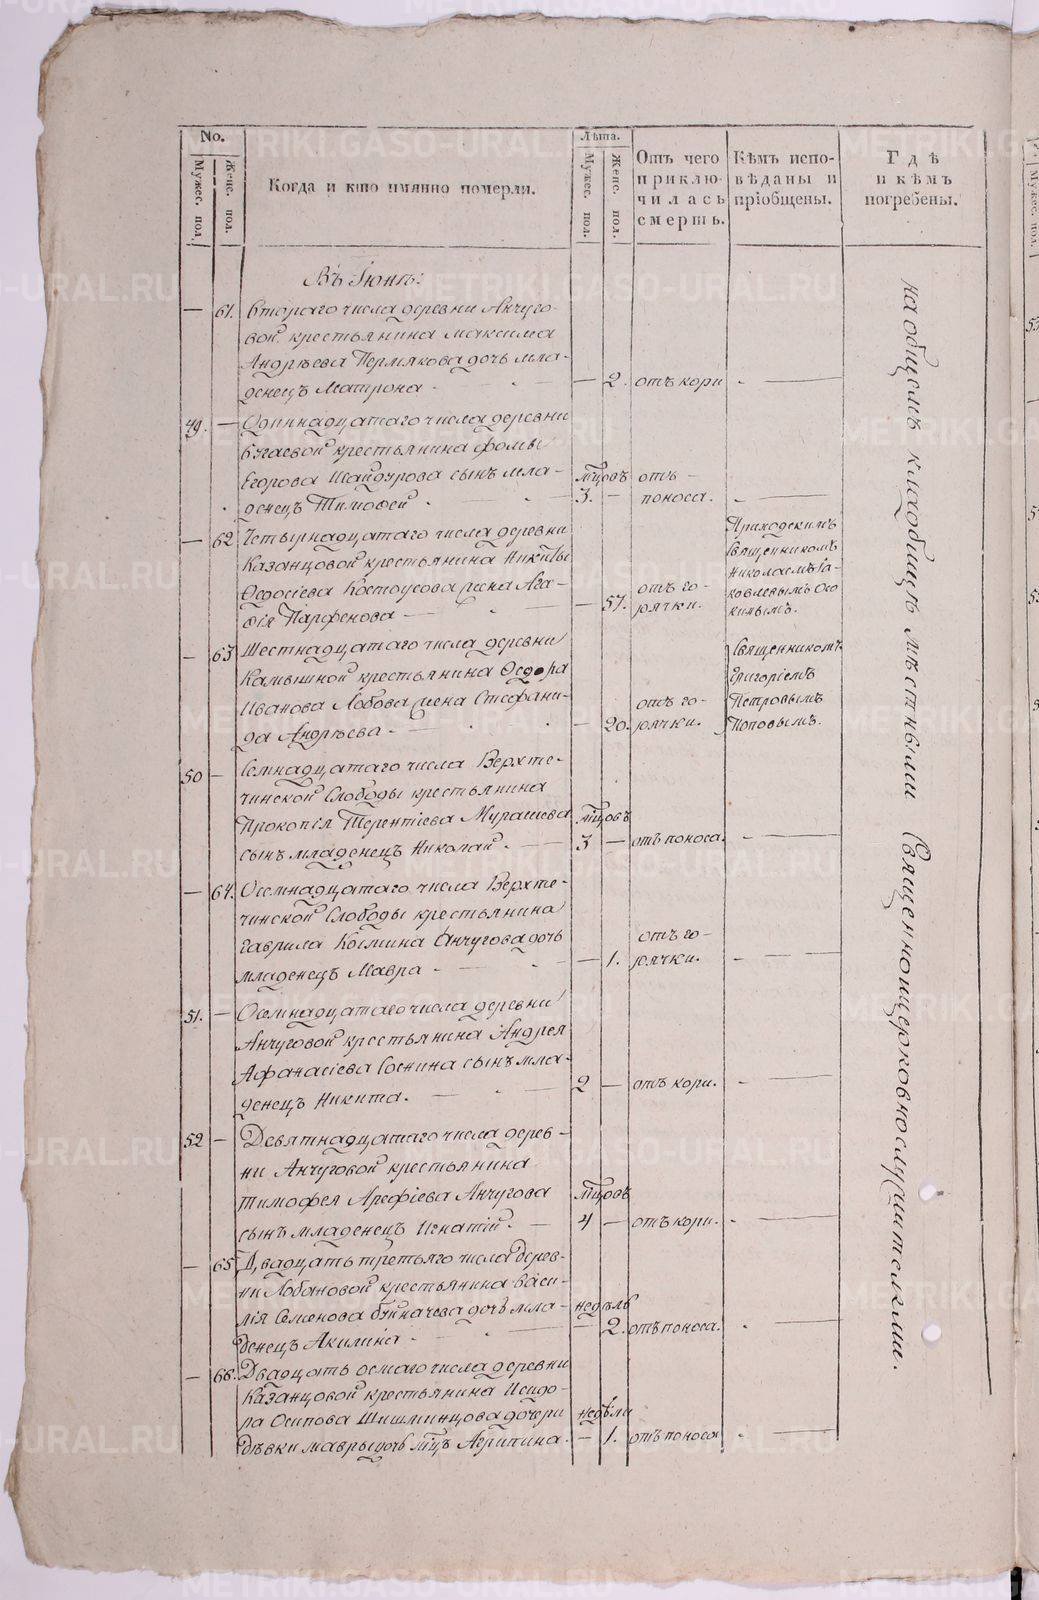 No.
Мужес. пол.
Женс. пол.
Когда и кто имянно померли.
Лѣта.
Мужес. пол.
Женс. пол.
Отъ чего
приклю-
чилась
смерть.
Кѣмъ испо-
вѣданы и
пріобщены.
Гдѣ
и кѣмъ
погребены.
Въ Іюнѣ:
— 61. Втораго числа деревни Анчуго-
вой крестьянина Максима
Андрѣева Пермякова дочь мла-
денецъ Матрона. — 2. отъ кори
49. — Одиннадцатаго числа деревни
Бугаевой крестьянина Фомы
Егорова сынъ мла- мцовъ отъ
денецъ Тимофей. 3. — поноса.
— 62. Четырнадцатаго числа деревни
Казанцовой крестьянина Никиты
Ѳедосіева Костоусова жена Ага-
ѳія Парфенова — 57. отъ го-
рячки.
Приходскимъ
Священникомъ
Николаемъ Іа-
ковлевымъ Осо
кинымъ.
— 63. Шестнадцатаго числа деревни
Камышной крестьянина Ѳедора
Иванова Лобова жена Стефани-
да Андрѣева. — 20. отъ го-
рячки.
Священникомъ
Григоріемъ
Петровымъ
Поповымъ.
50 — Семнадцатаго числа Верхте-
чинской Слободы крестьянина
Прокопія Терентіева Мурашева мцовъ
сынъ младенецъ Николай. 3 — отъ поноса.
— 64. Осемнадцатаго числа Верхте-
чинской Слободы крестьянина
Гаврила Козмина Анчугова дочь отъ го-
младенецъ Мавра — 1. рячки.
51. — Осемнадцатаго числа деревни
Анчуговой крестьянина Андрея
Афанасіева Соснина сынъ мла-
денецъ Никита. 2 — отъ кори.
52 — Девятнадцатаго числа дерев-
ни Анчуговой крестьянина
Тимофея Арефіева Анчугова мцовъ
сынъ младенецъ Игнатій. 4 — отъ кори.
— 65. Двадцать третьяго числа дерев-
ни Лобановой крестьянина Васи-
лія Семенова дочь мла- недѣль
денецъ Акилина. — 2. отъ поноса.
— 66. Двадцать осмаго числа деревни
Казанцовой крестьянина Исидо-
ра Осипова Шишминцова дочери недѣли
дѣвки Мавры дочь мцъ Агрипина. — 1. отъ поноса
на общемъ кладбищѣ мѣстными Священноцерковнослужителями.
METRIKI.GASO-URAL.RU